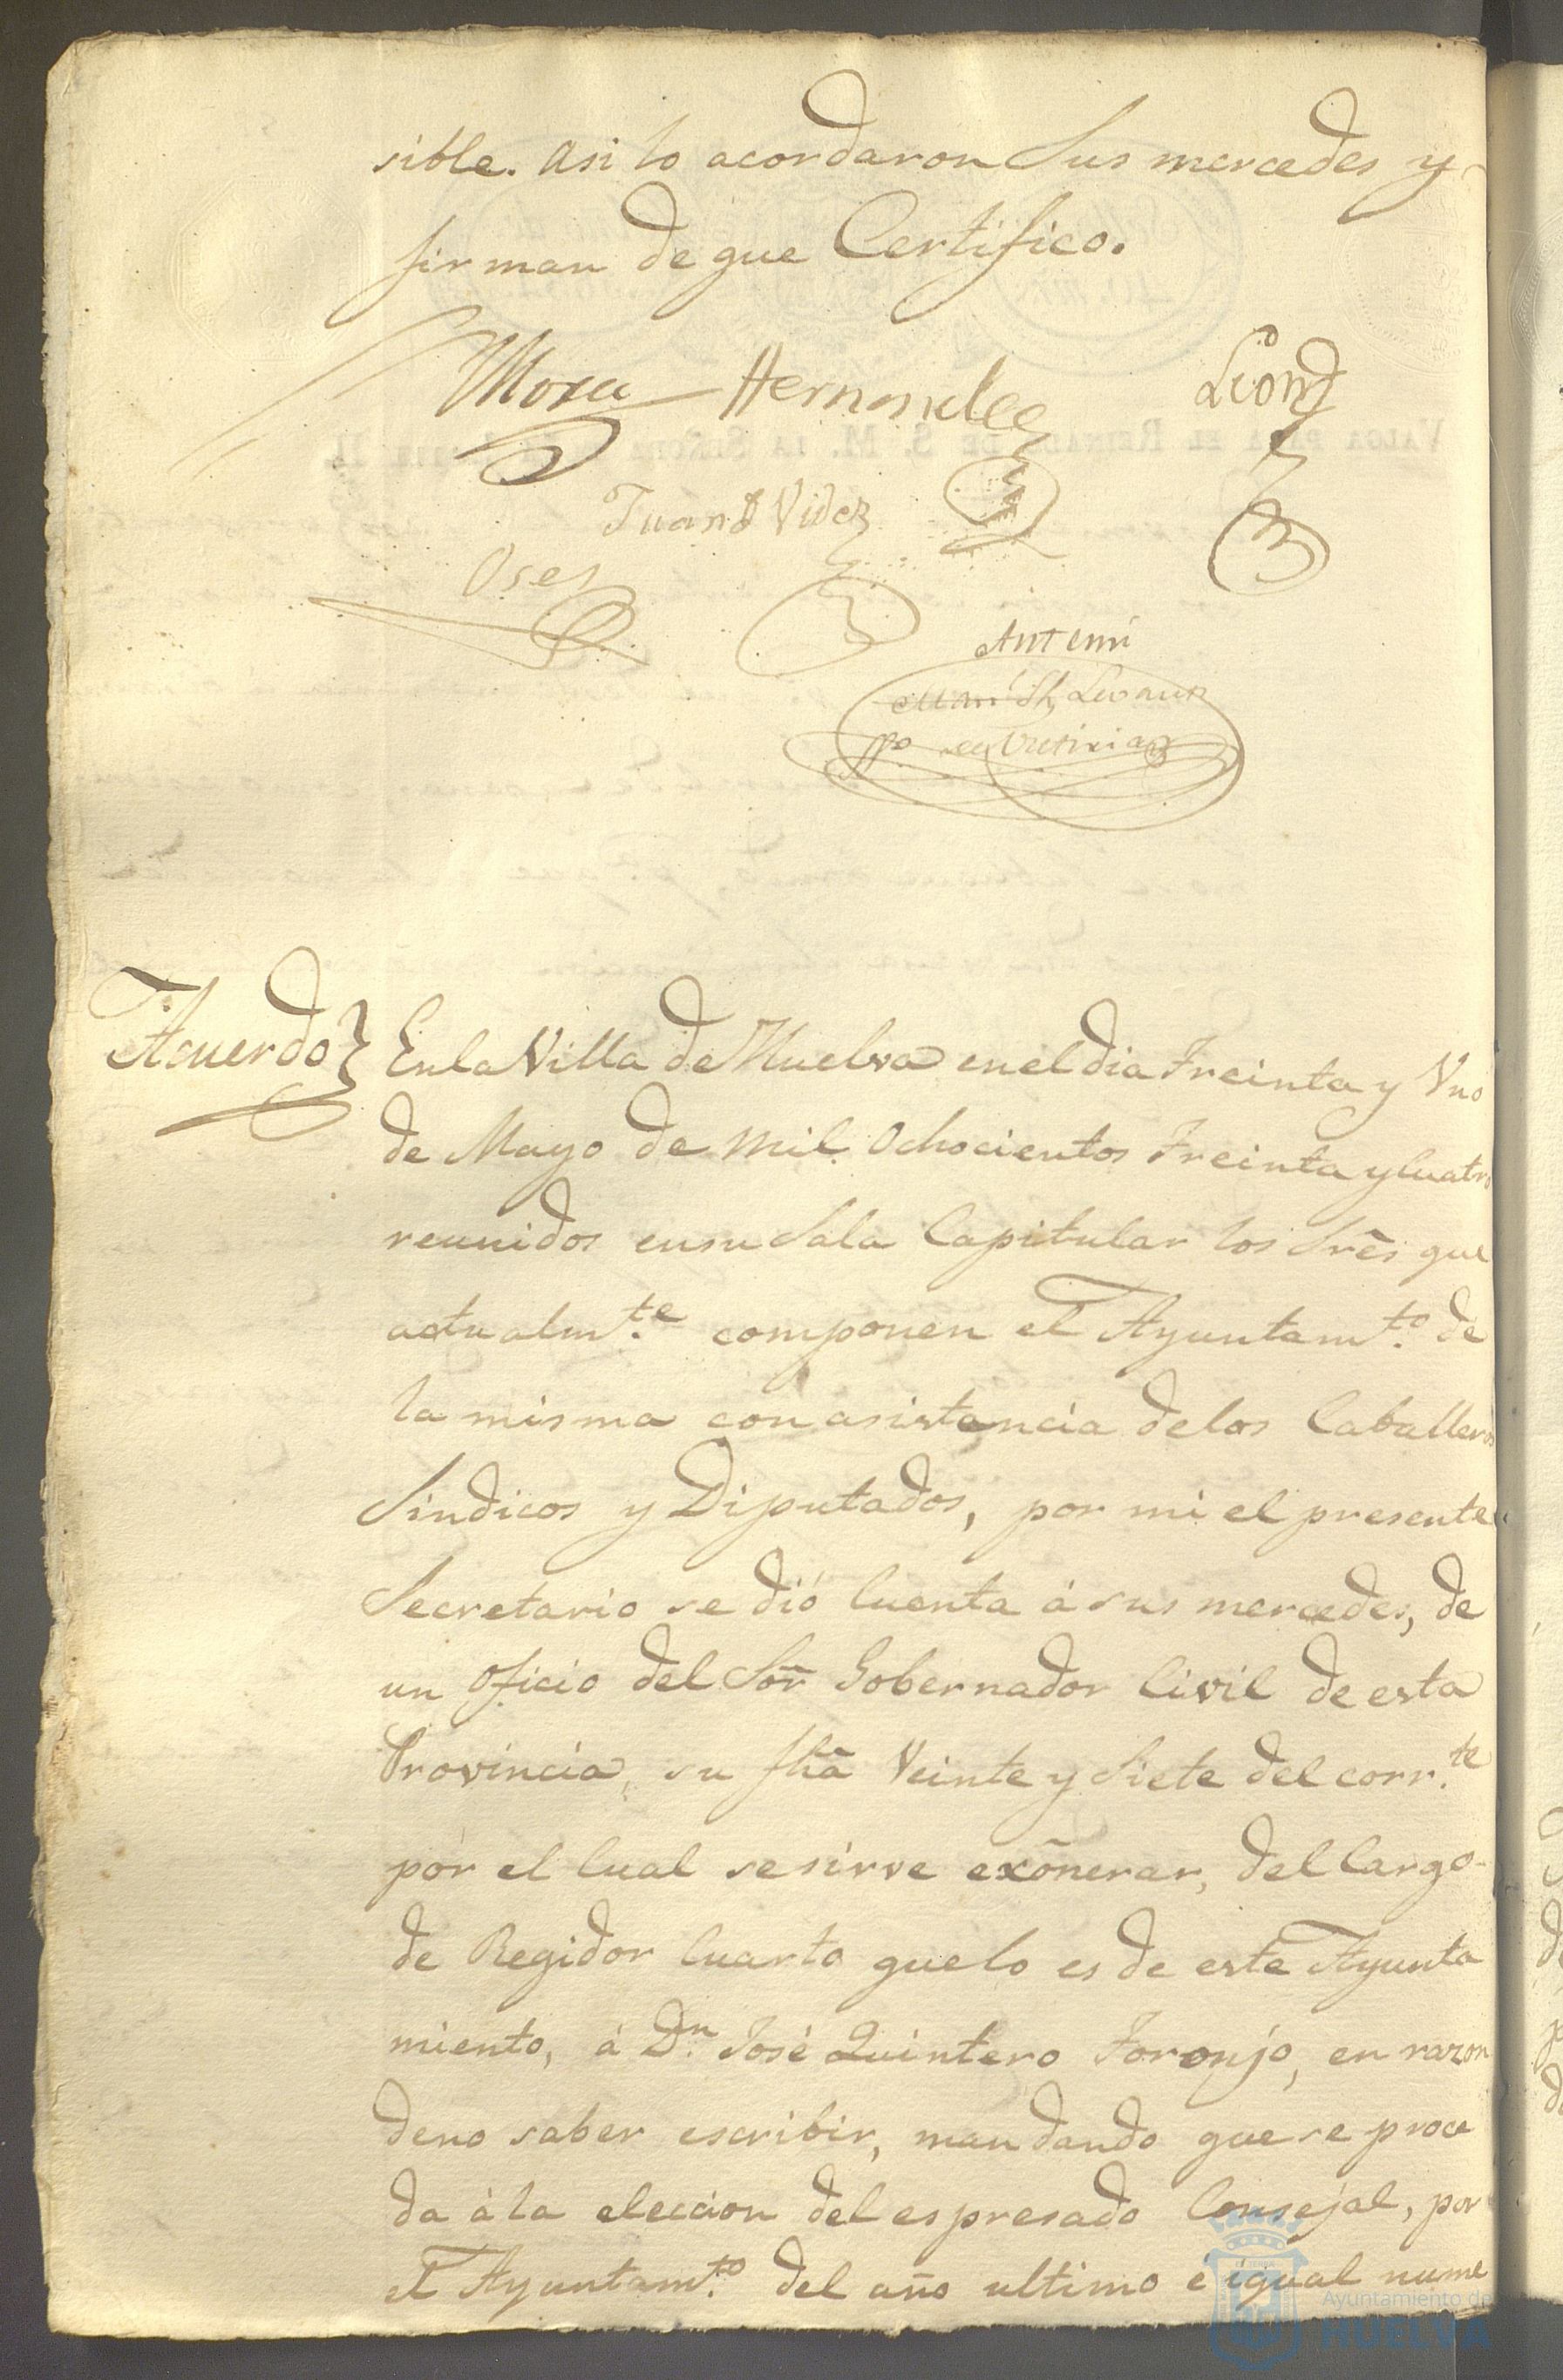 sible. Asi lo acordaron Sus mercedes y
firman de que Certifico.
Mora Hernandez Leon
Juan Videz
Oses
Antemi
Acuerdo
En la Villa de Huelva en el dia Treinta y Uno
de Mayo de mil Ochocientos Treinta y Cuatro
reunidos en su Sala Capitular los Srēs que
actualm.te componen el Ayuntam.to de
la misma con asistencia de los Caballeros
Sindicos y Diputados, por mi el presente
Secretario se dió Cuenta á sus mercedes, de
un oficio del Sōr Gobernador Civil de esta
Provincia, su fhā Veinte y Siete del corr.te
por el Cual se sirve exônerar, del Cargo
de Regidor Cuarto que lo es de este Ayunta
miento, á D.n José Quintero Toronjo, en razon
de no saber escribir, mandando que se proce
da á la eleccion del espresado Consejal, por
el Ayuntam.to del año ultimo é igual nume
Ayuntamiento de
HUELVA